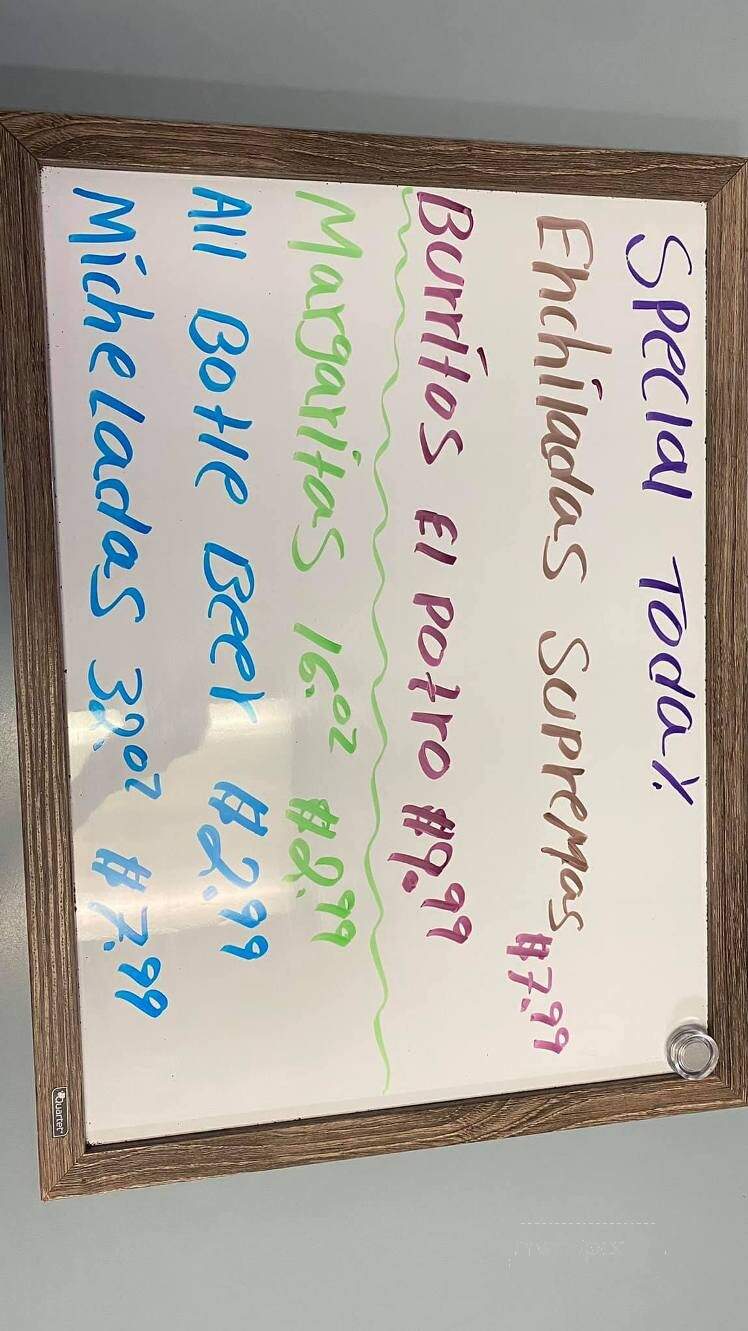 Special Today
Enchiladas Supremas #7.99
Burritos El Potro #9.99
Margaritas 16.oz #2.99
All Botle Beer #2.99
Micheladas 32.oz #7.99
Quartet